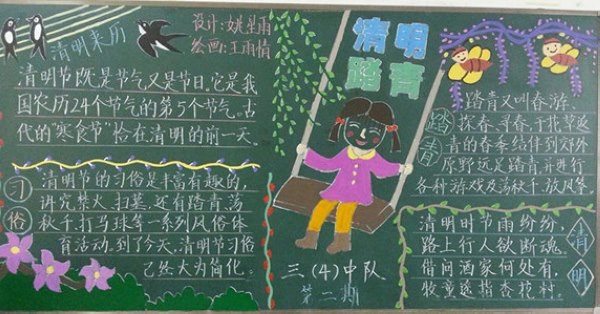 清明来历
设计:姚星雨
绘画:王雨情
清明节既是节气又是节日。它是我
国农历24个节气的第5个节气。古
代的“寒食节”恰在清明的前一天。
习俗
清明节的习俗是丰富有趣的,
讲究禁火、扫墓,还有踏青荡
秋千、打马球等一系列风俗体
育活动。到了今天,清明节习俗
已然大为简化。
清明
踏青
三(4)中队
第二期
踏青
踏青又叫春游、
探春、寻春,于花草返
青的春季结伴到郊外
原野远足踏青,并进行
各种游戏及荡秋千、放风筝。
清明时节雨纷纷,
路上行人欲断魂。
借问酒家何处有,
牧童遥指杏花村。
清明